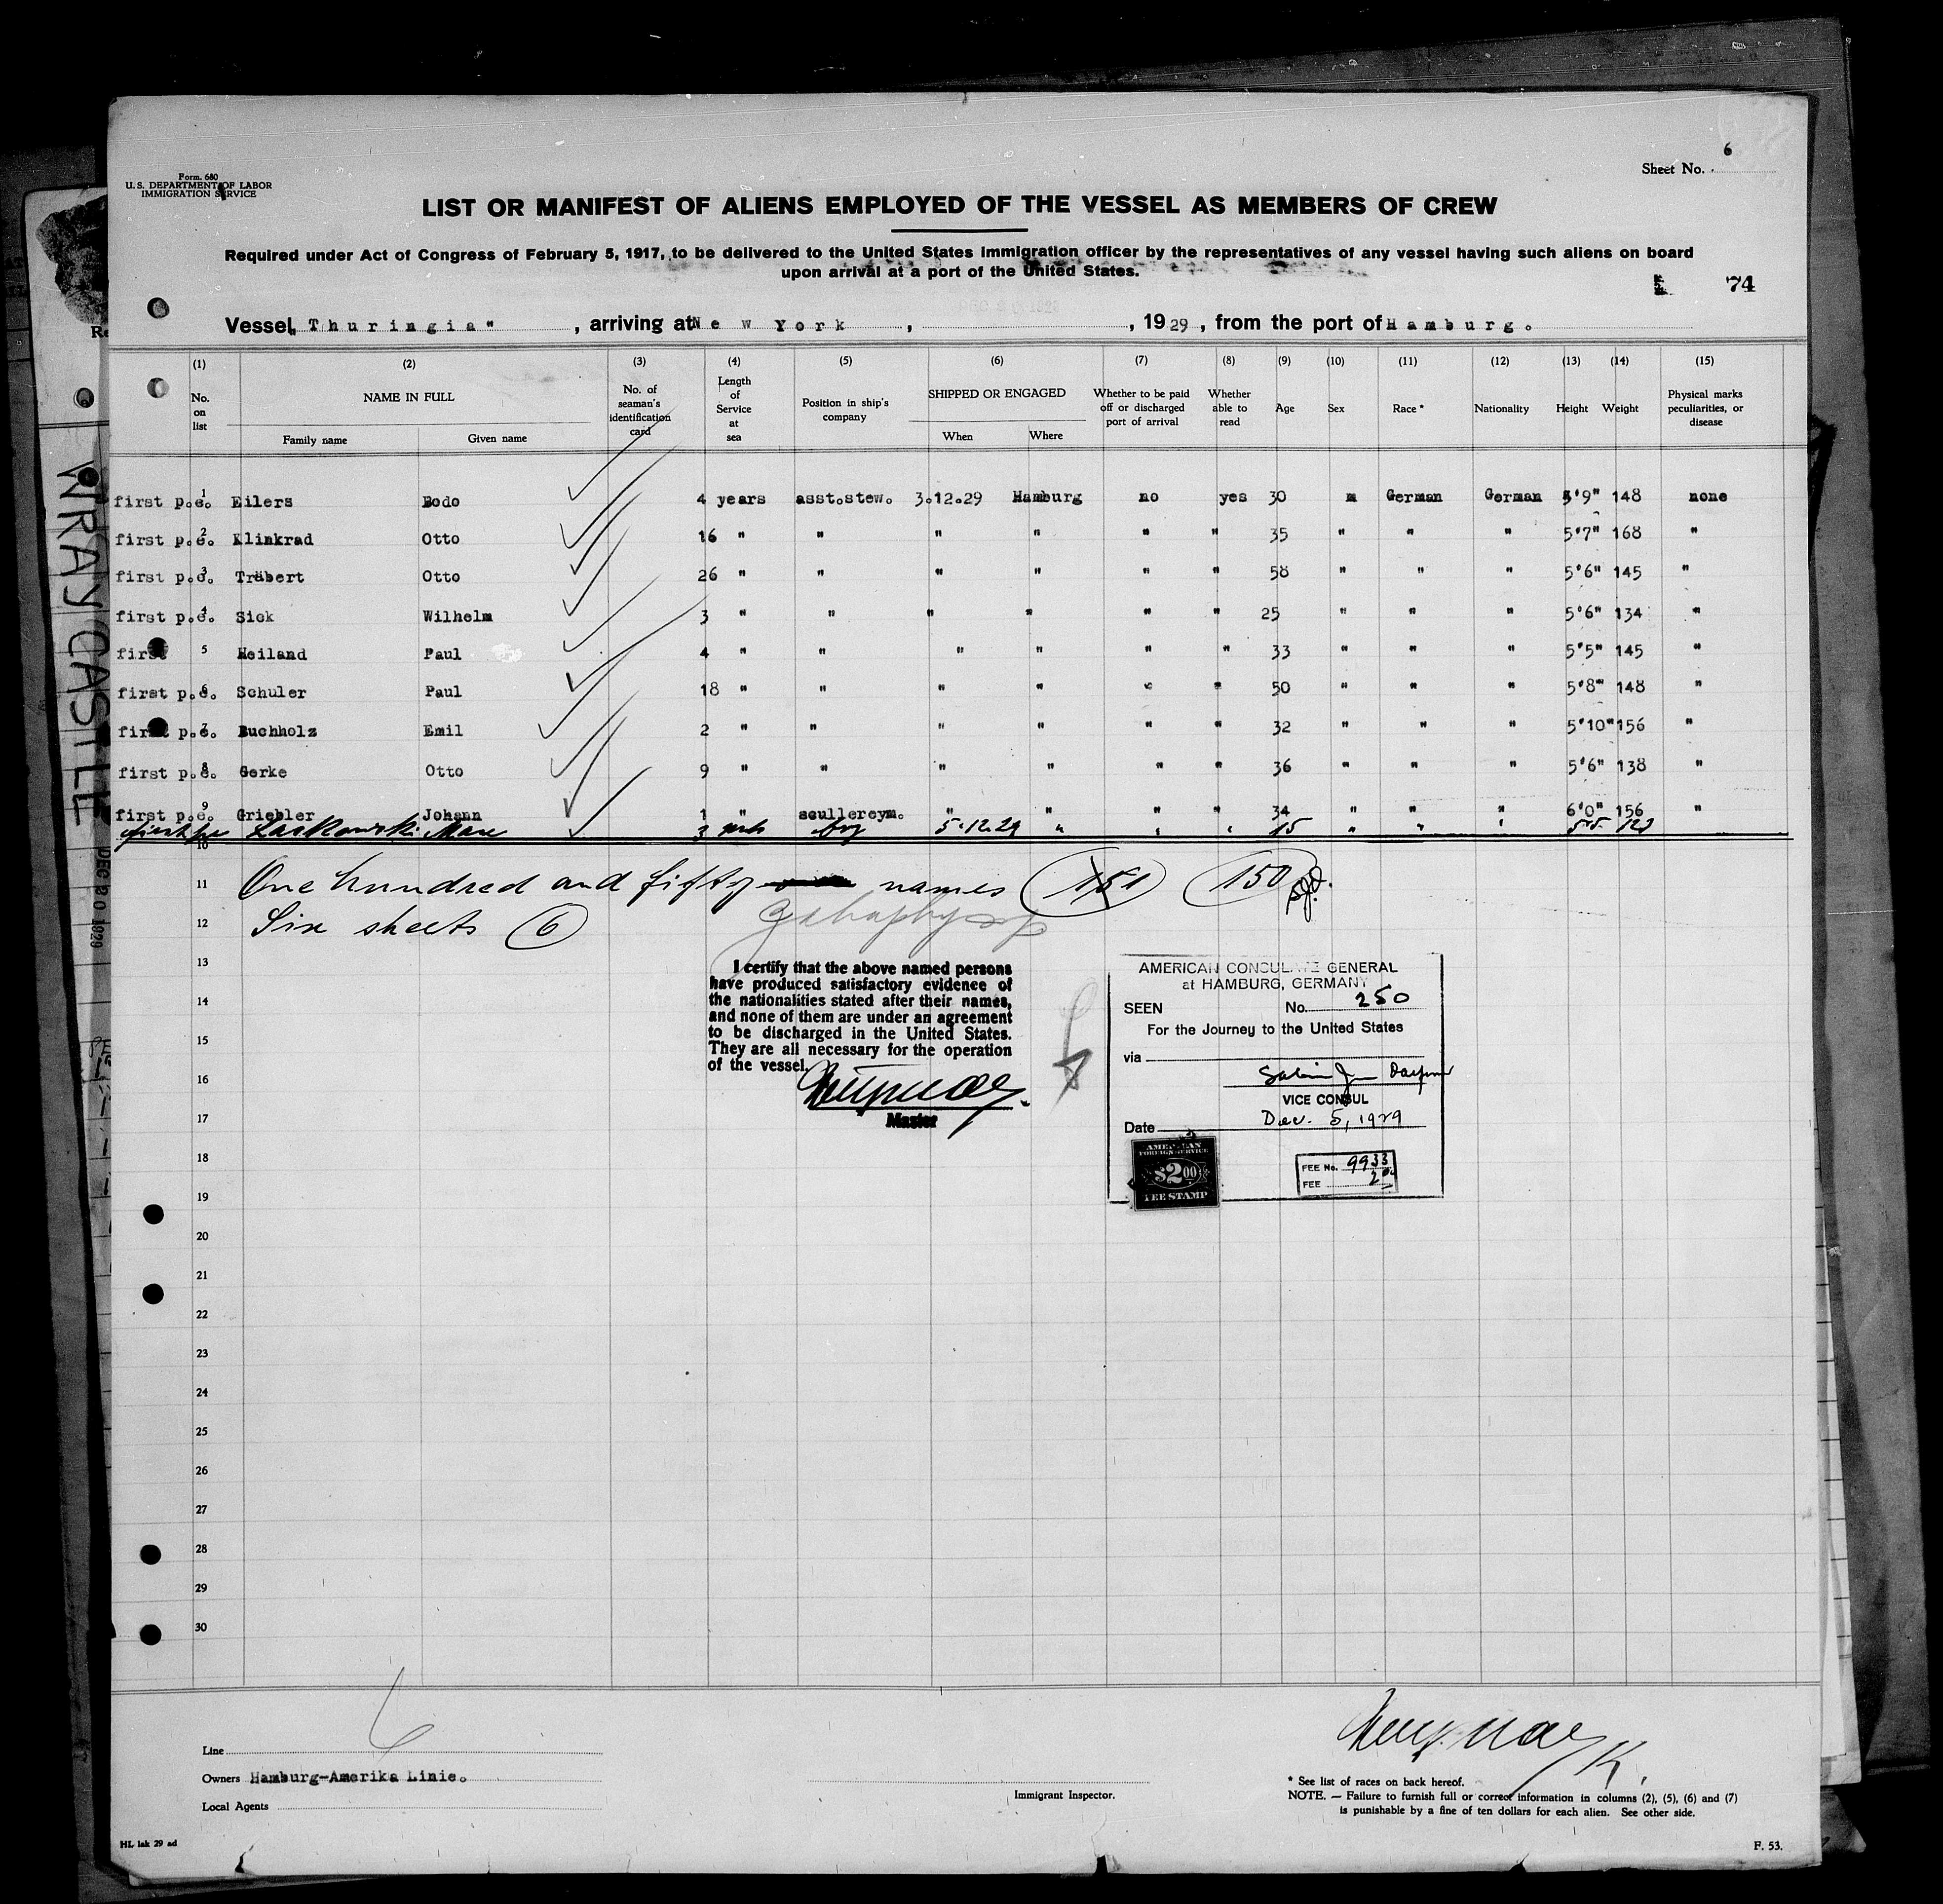 Form. 680
U. S. DEPARTMENT OF LABOR
IMMIGRATION SERVICE
Sheet No. 6
LIST OR MANIFEST OF ALIENS EMPLOYED OF THE VESSEL AS MEMBERS OF CREW
Required under Act of Congress of February 5, 1917, to be delivered to the United States Immigration officer by the representatives of any vessel having such aliens on board
upon arrival at a port of the United States.
74
Vessel "Thuringia", arriving at New York, , 1929, from the port of Hamburg.
(1) (2) (3) (4) (5) (6) (7) (8) (9) (10) (11) (12) (13) (14) (15)
No. on list
NAME IN FULL
Family name Given name
No. of seaman's identification card
Length of Service at sea
Position in ship's company
SHIPPED OR ENGAGED
When Where
Whether to be paid off or discharged port of arrival
Whether able to read
Age
Sex
Race *
Nationality
Height
Weight
Physical marks peculiarities, or disease
first p.e. 1 Eilers Bodo 4 years asst.stew. 3.12.29 Hamburg no yes 30 m German German 5'9" 148 none
first p.e. 2 Klinkrad Otto 16 " " " " " " 35 " " " 5'7" 168 "
first p.e. 3 Träbert Otto 26 " " " " " " 58 " " " 5'6" 145 "
first p.e. 4 Sick Wilhelm 3 " " " " " " 25 " " " 5'6" 134 "
first 5 Heiland Paul 4 " " " " " " 33 " " " 5'5" 145 "
first p.e. 6 Schuler Paul 18 " " " " " " 50 " " " 5'8" 148 "
first p.e. 7 Buchholz Emil 2 " " " " " " 32 " " " 5'10" 156 "
first p.e. 8 Gerke Otto 9 " " " " " " 36 " " " 5'6" 138 "
first p.e. 9 Griebler Johann 1 " scullereym. " " " " 34 " " " 6'0" 156 "
first pe Laskowski Max boy 5.12.29 " " " 15 " " " 5'5 123
10
11 One hundred and fifty names 151 150
12 Six sheets 6
13
14
15
16
17
18
19
20
21
22
23
24
25
26
27
28
29
30
I certify that the above named persons
have produced satisfactory evidence of
the nationalities stated after their names,
and none of them are under an agreement
to be discharged in the United States.
They are all necessary for the operation
of the vessel.
Master
AMERICAN CONSULATE GENERAL
at HAMBURG, GERMANY
SEEN No. 250
For the Journey to the United States
via
VICE CONSUL
Date Dec. 5, 1929
AMERICAN
FOREIGN SERVICE
$2.00
FEE STAMP
FEE No. 9933
FEE 2.00
Line
Owners Hamburg-Amerika Linie.
Local Agents
Immigrant Inspector.
* See list of races on back hereof.
NOTE. — Failure to furnish full or correct information in columns (2), (5), (6) and (7)
is punishable by a fine of ten dollars for each alien. See other side.
HL lak 29 ad
F. 53.
WRAY CASTLE
DEC 20 1929